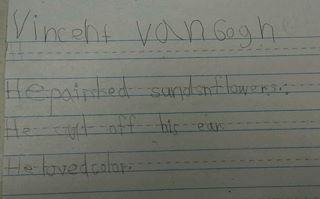 Vincent van Gogh
He painted sundnflowers.
He cut off his ear.
He loved color.